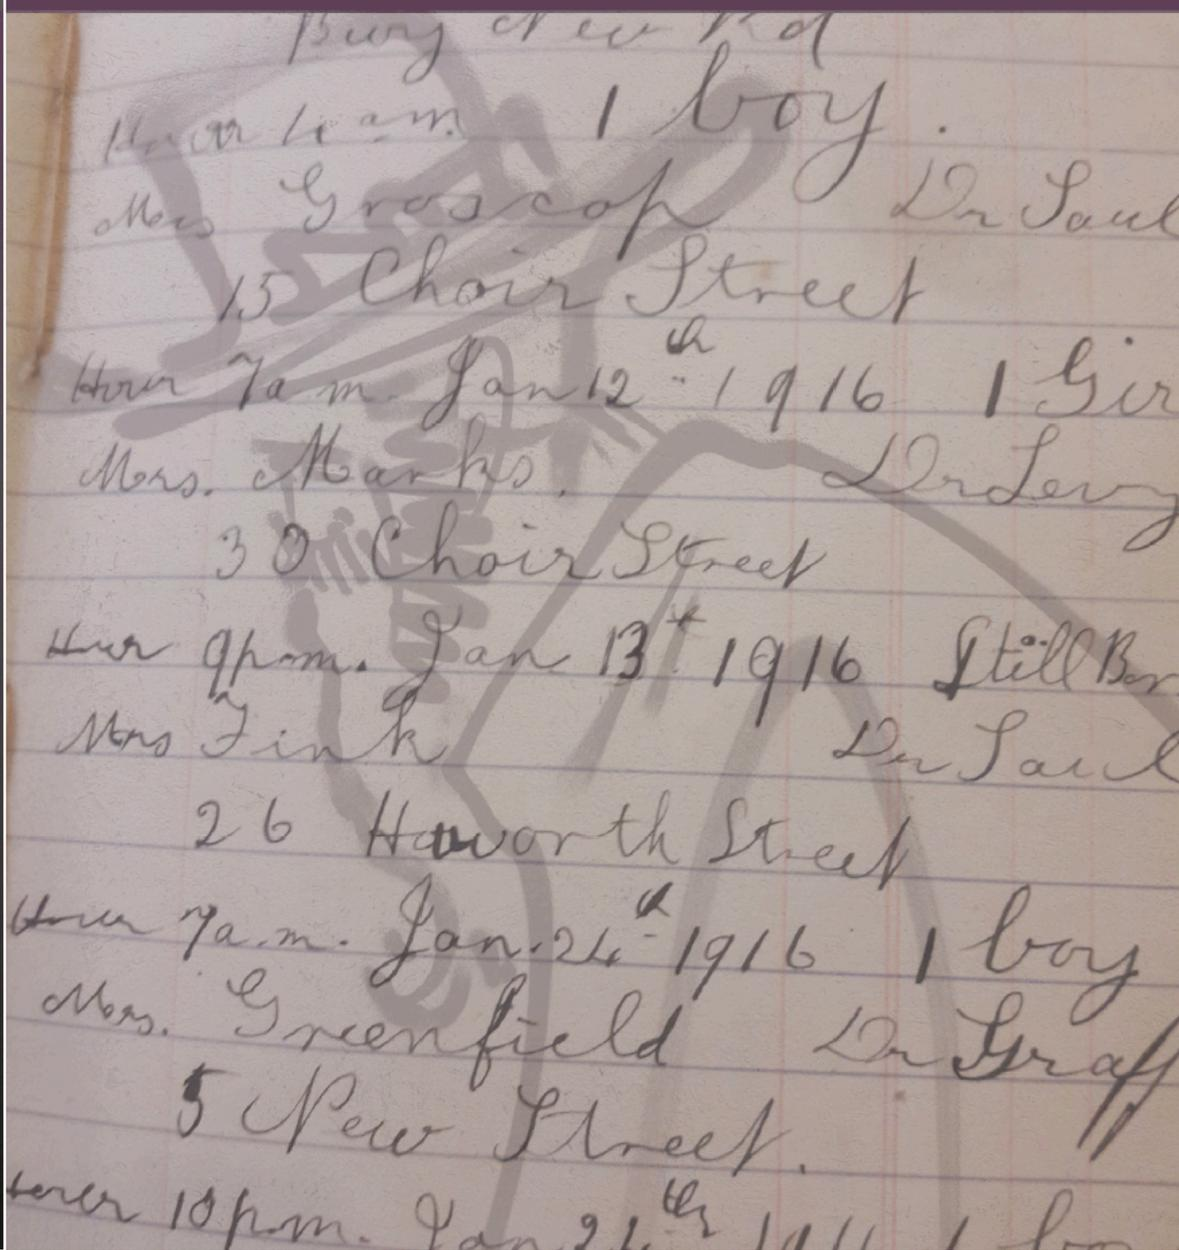 Bury New Rd
Hour 4 am. 1 boy.
Mrs Groscop Dr Saul
15 Choir Street
Hour 7 a m. Jan 12th 1916 1 Gir
Mrs. Marks. Dr Levy
30 Choir Street
Hour 9 p.m. Jan 13th 1916 Still Bor
Mrs Fink Dr Saul
26 Haworth Street
Hour 7 a.m. Jan. 24th 1916 1 boy
Mrs. Greenfield Dr Graff
5 New Street.
Hour 10 p.m. Jan 24th 1916 1 bo